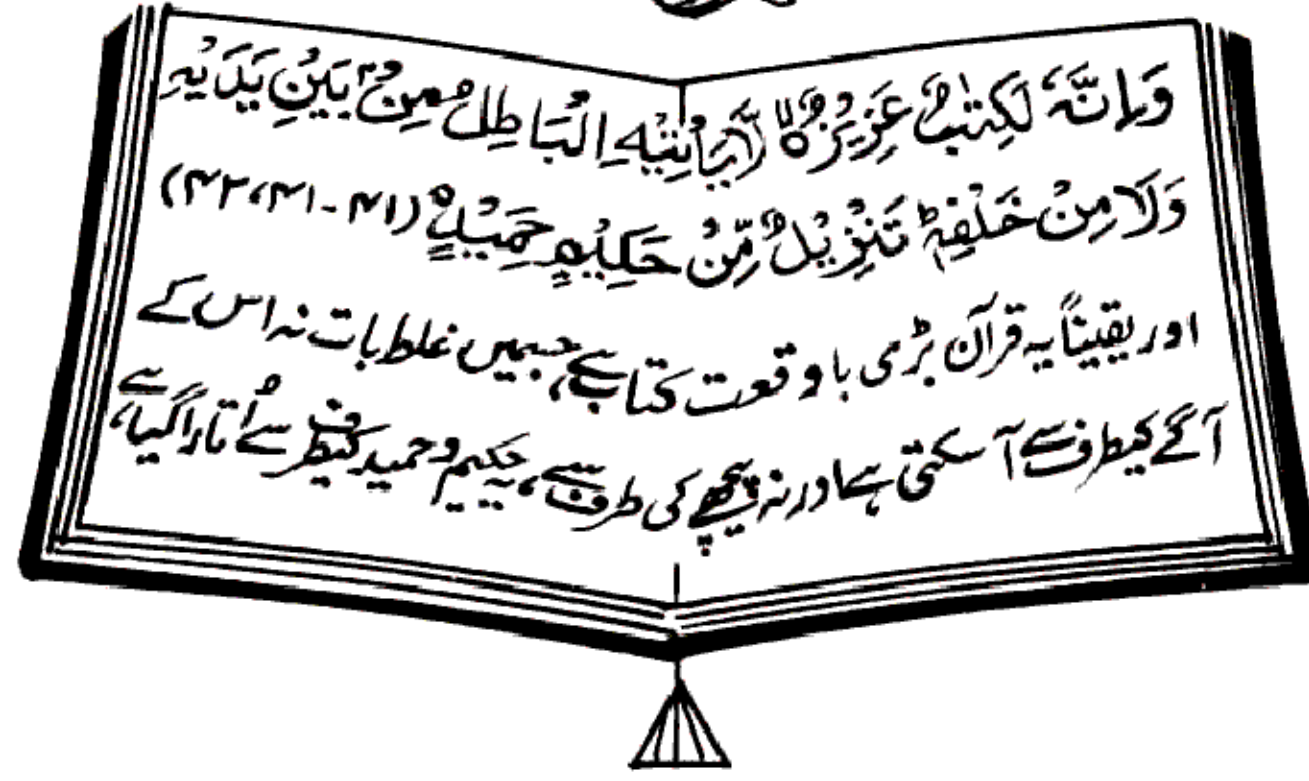 وَاِنَّهٗ لَكِتٰبٌ عَزِيْزٌ ۙ لَّا يَاْتِيْهِ الْبَاطِلُ مِنْۢ بَيْنِ يَدَيْهِ
وَلَا مِنْ خَلْفِهٖ ؕ تَنْزِيْلٌ مِّنْ حَكِيْمٍ حَمِيْدٍ (۴۱-۴۱،۴۲)
اور یقیناً یہ قرآن بڑی با وقعت کتاب ہے، جسمیں غلط بات نہ اس کے
آگے کیطرف سے آ سکتی ہے اور نہ پیچھے کی طرف سے، یہ حکیم و حمید کیطرف سے اُتارا گیا ہے،